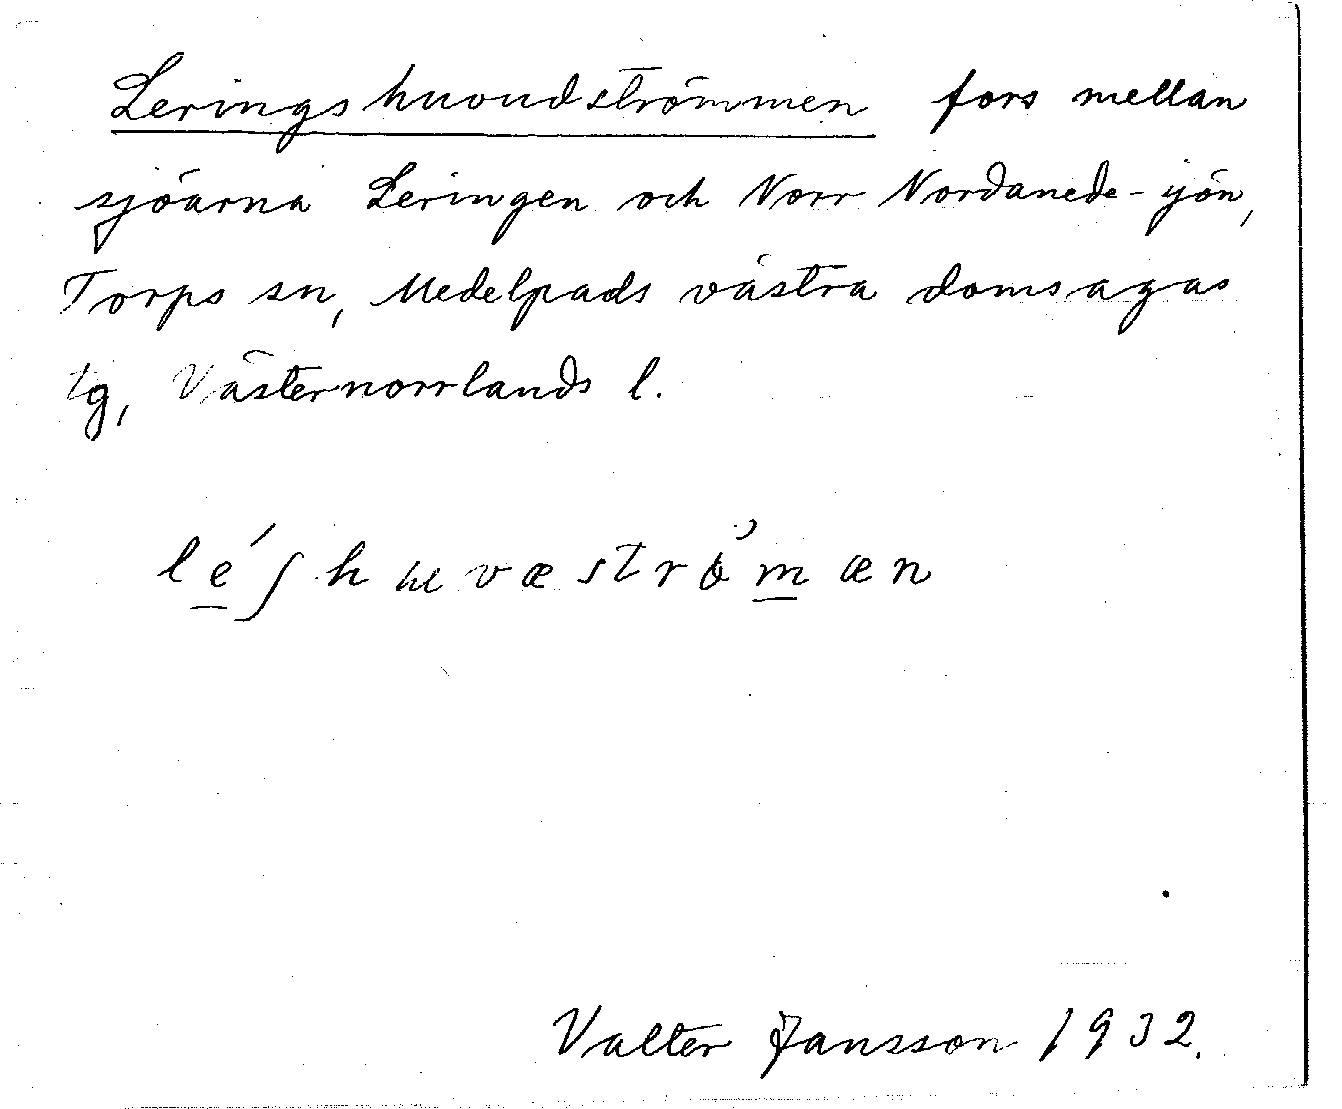 Leringshuvudströmmen fors mellan
sjöarna Leringen och Norr Nordanede-sjön,
Torps sn, Medelpads västra domsagas
tg, Västernorrlands l.
le̲ʹʃhuvæströ̀m̲æn
Valter Jansson 1932.